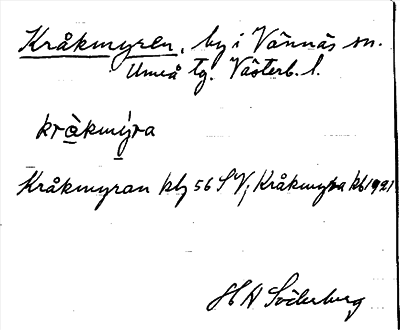 Kråkmyren, by i Vännäs sn.
Umeå tg. Västerb. l.
kràkmýra
Kråkmyran kbg 56 SV; Kråkmyra kb 1921
H A Söderberg